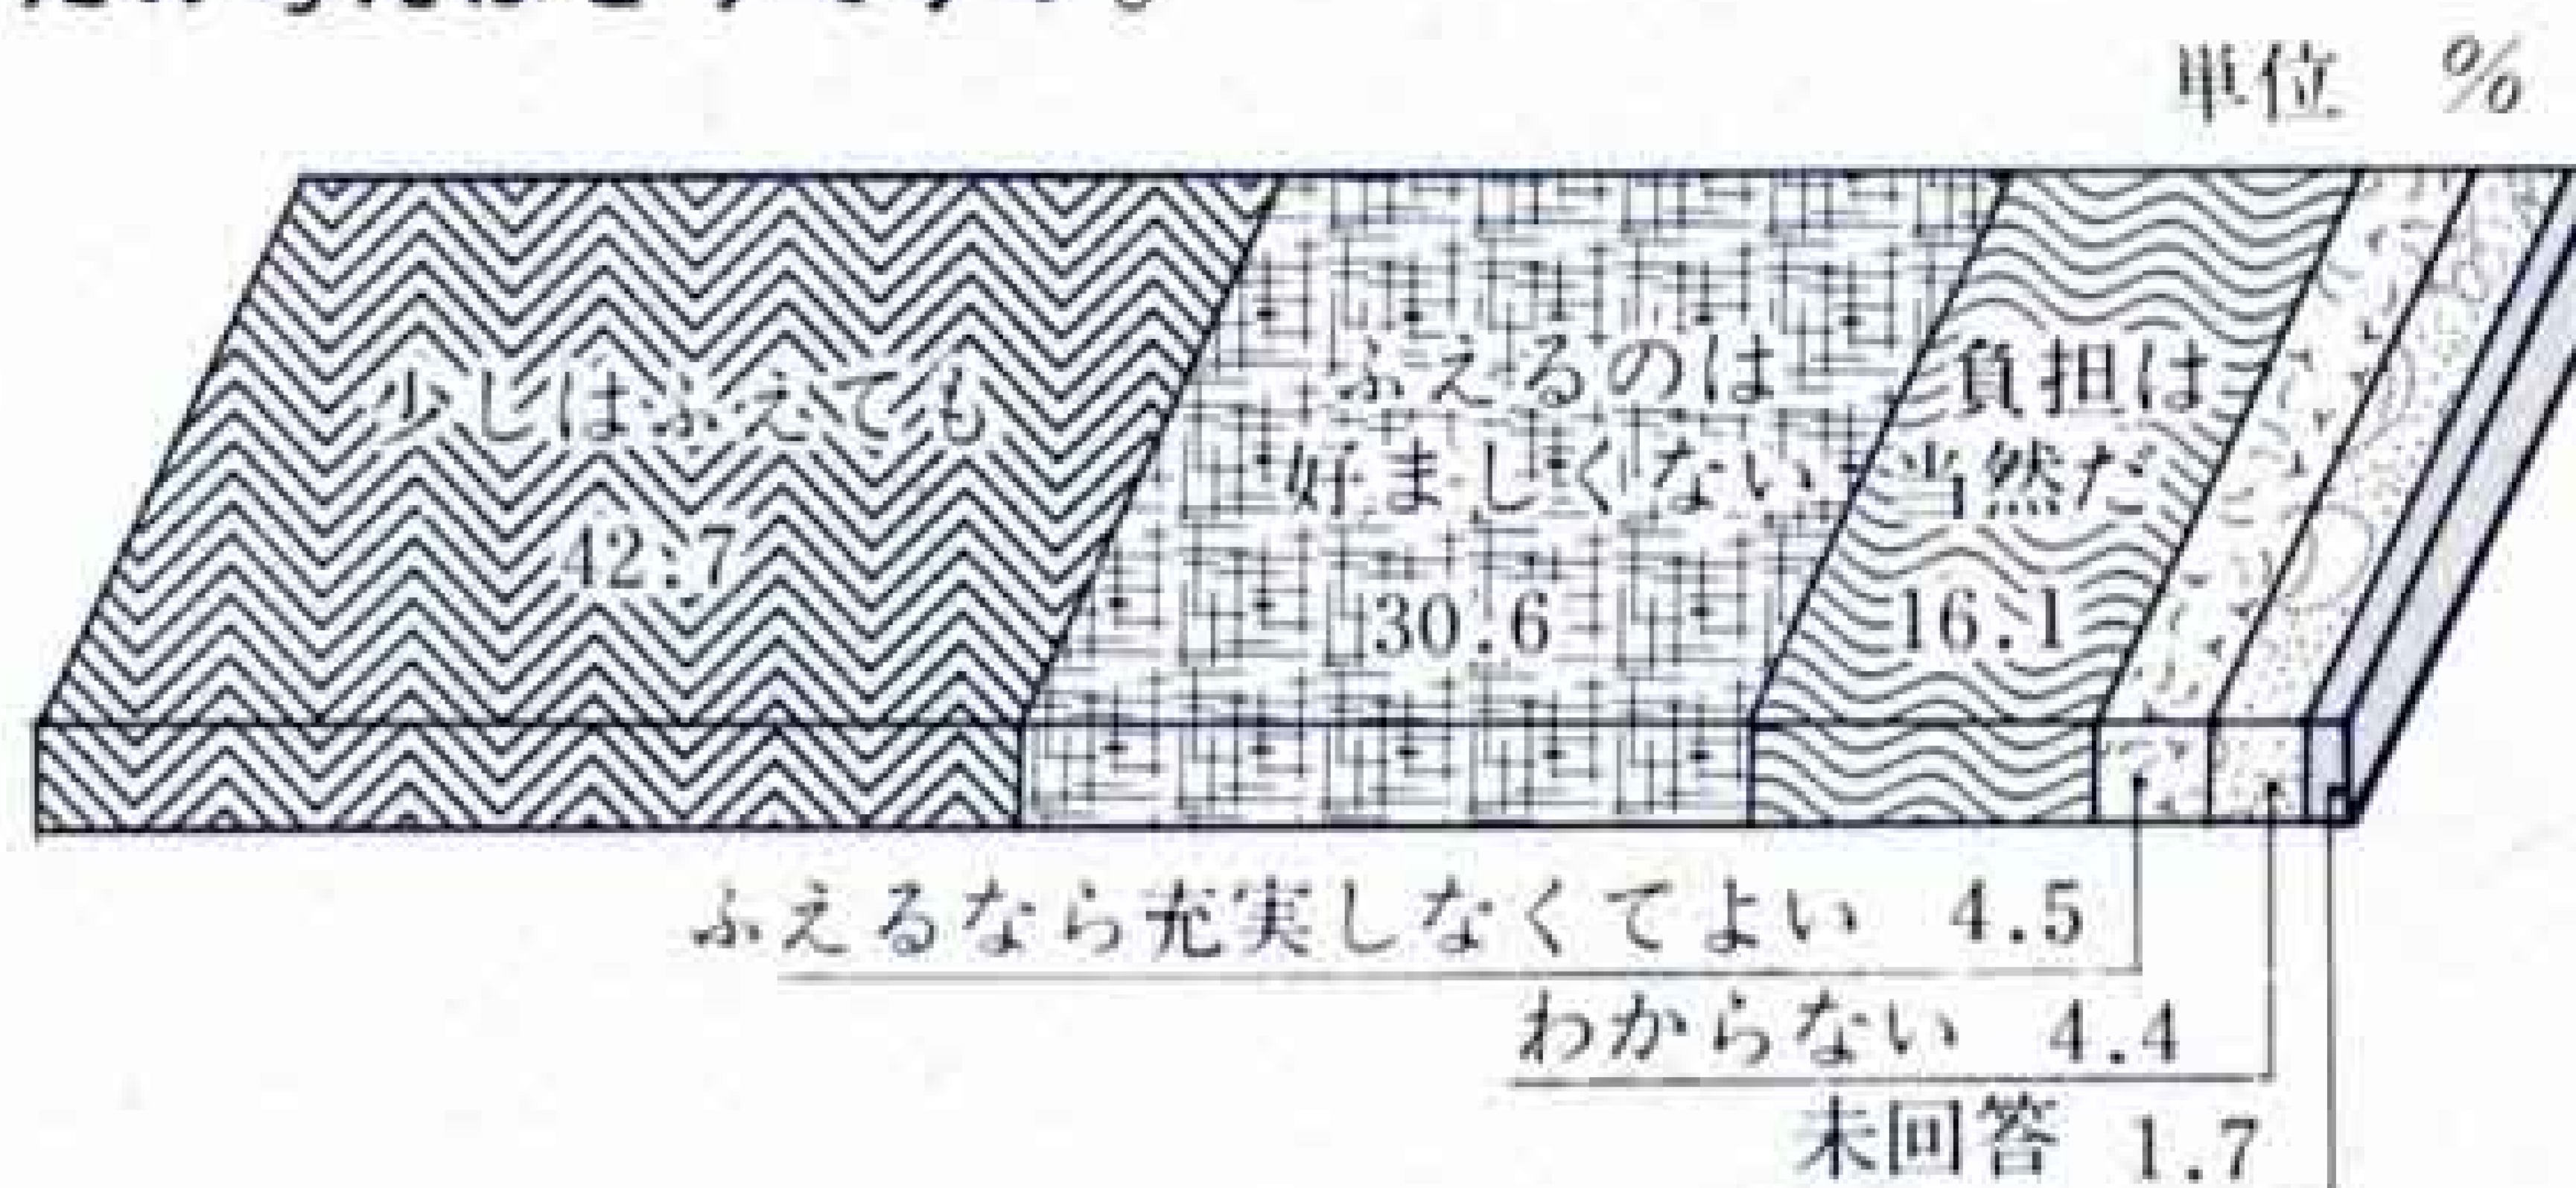 単位 %
少しはふえても
42.7
ふえるのは
好ましくない
30.6
負担は
当然だ
16.1
ふえるなら充実しなくてよい 4.5
わからない 4.4
未回答 1.7